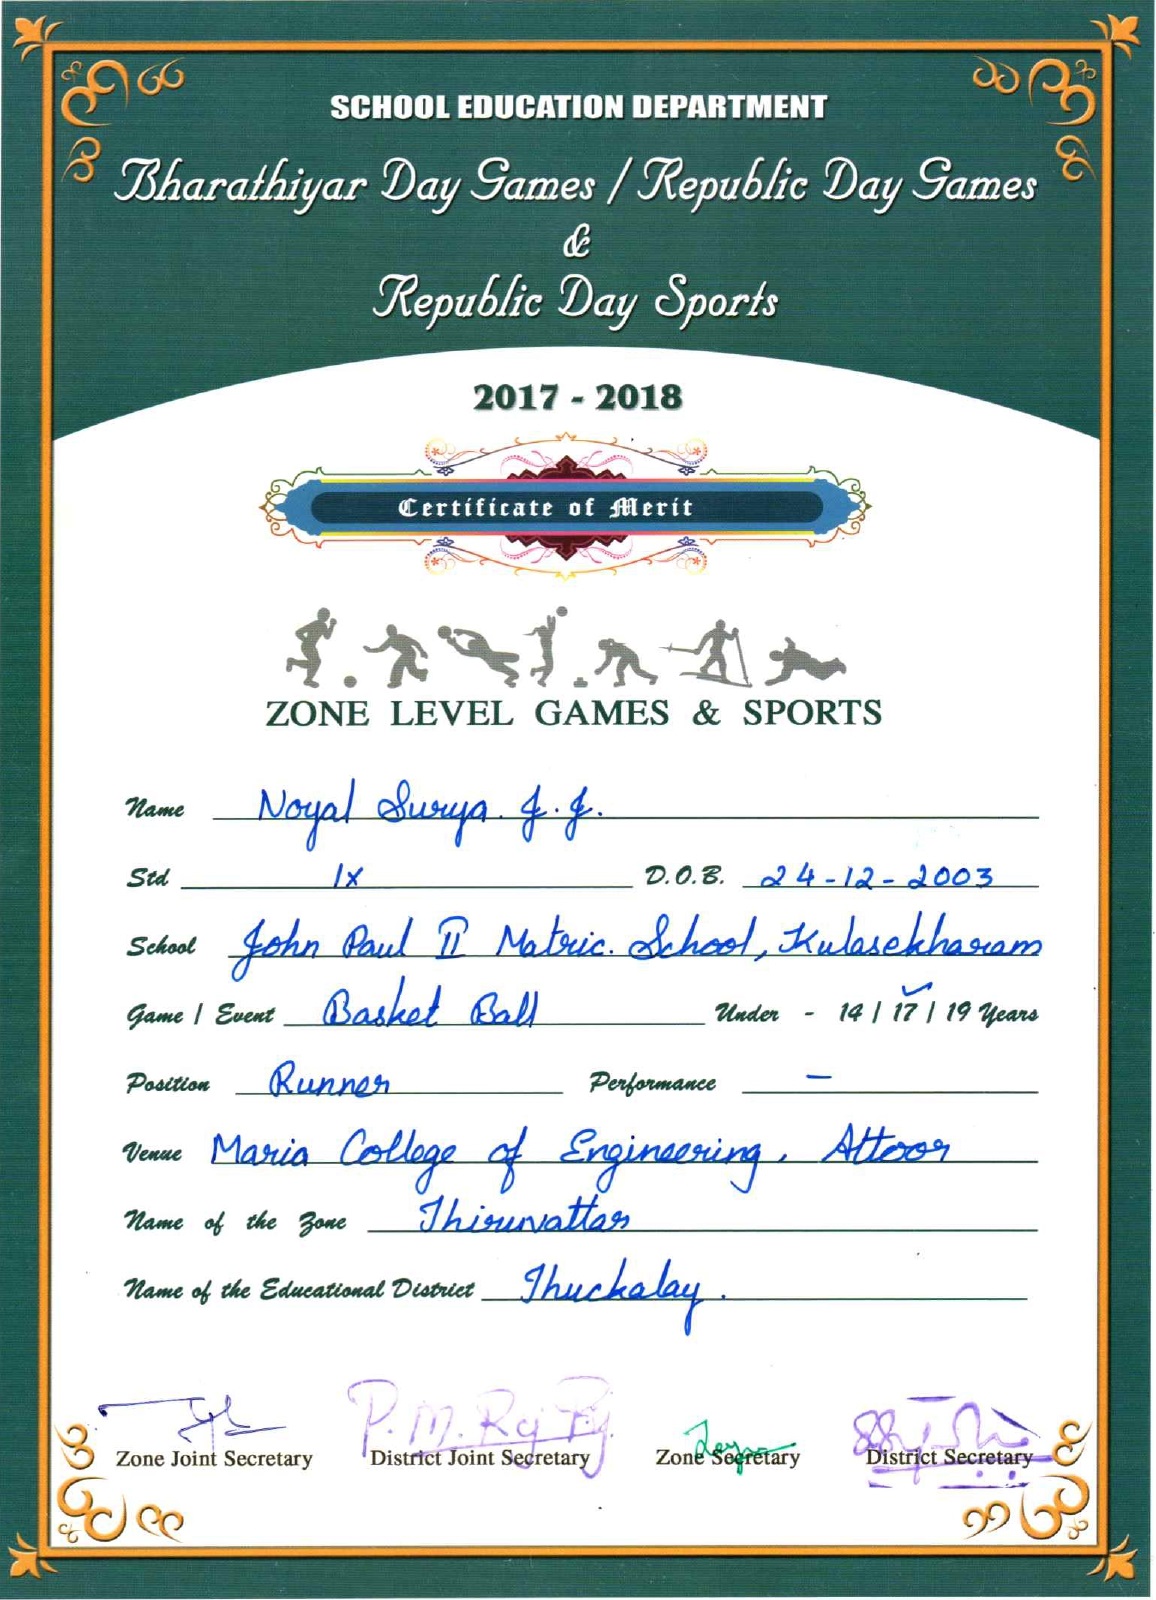 SCHOOL EDUCATION DEPARTMENT
Bharathiyar Day Games / Republic Day Games
&
Republic Day Sports
2017 - 2018
Certificate of Merit
ZONE LEVEL GAMES & SPORTS
Name Noyal Surya. J. J.
Std IX D.O.B. 24-12-2003
School John Paul II Matric. School, Kulasekharam
Game / Event Basket Ball Under - 14 / 17 / 19 Years
Position Runner Performance -
Venue Maria College of Engineering, Attoor
Name of the Zone Thiruvattar
Name of the Educational District Thuckalay.
Zone Joint Secretary District Joint Secretary Zone Secretary District Secretary